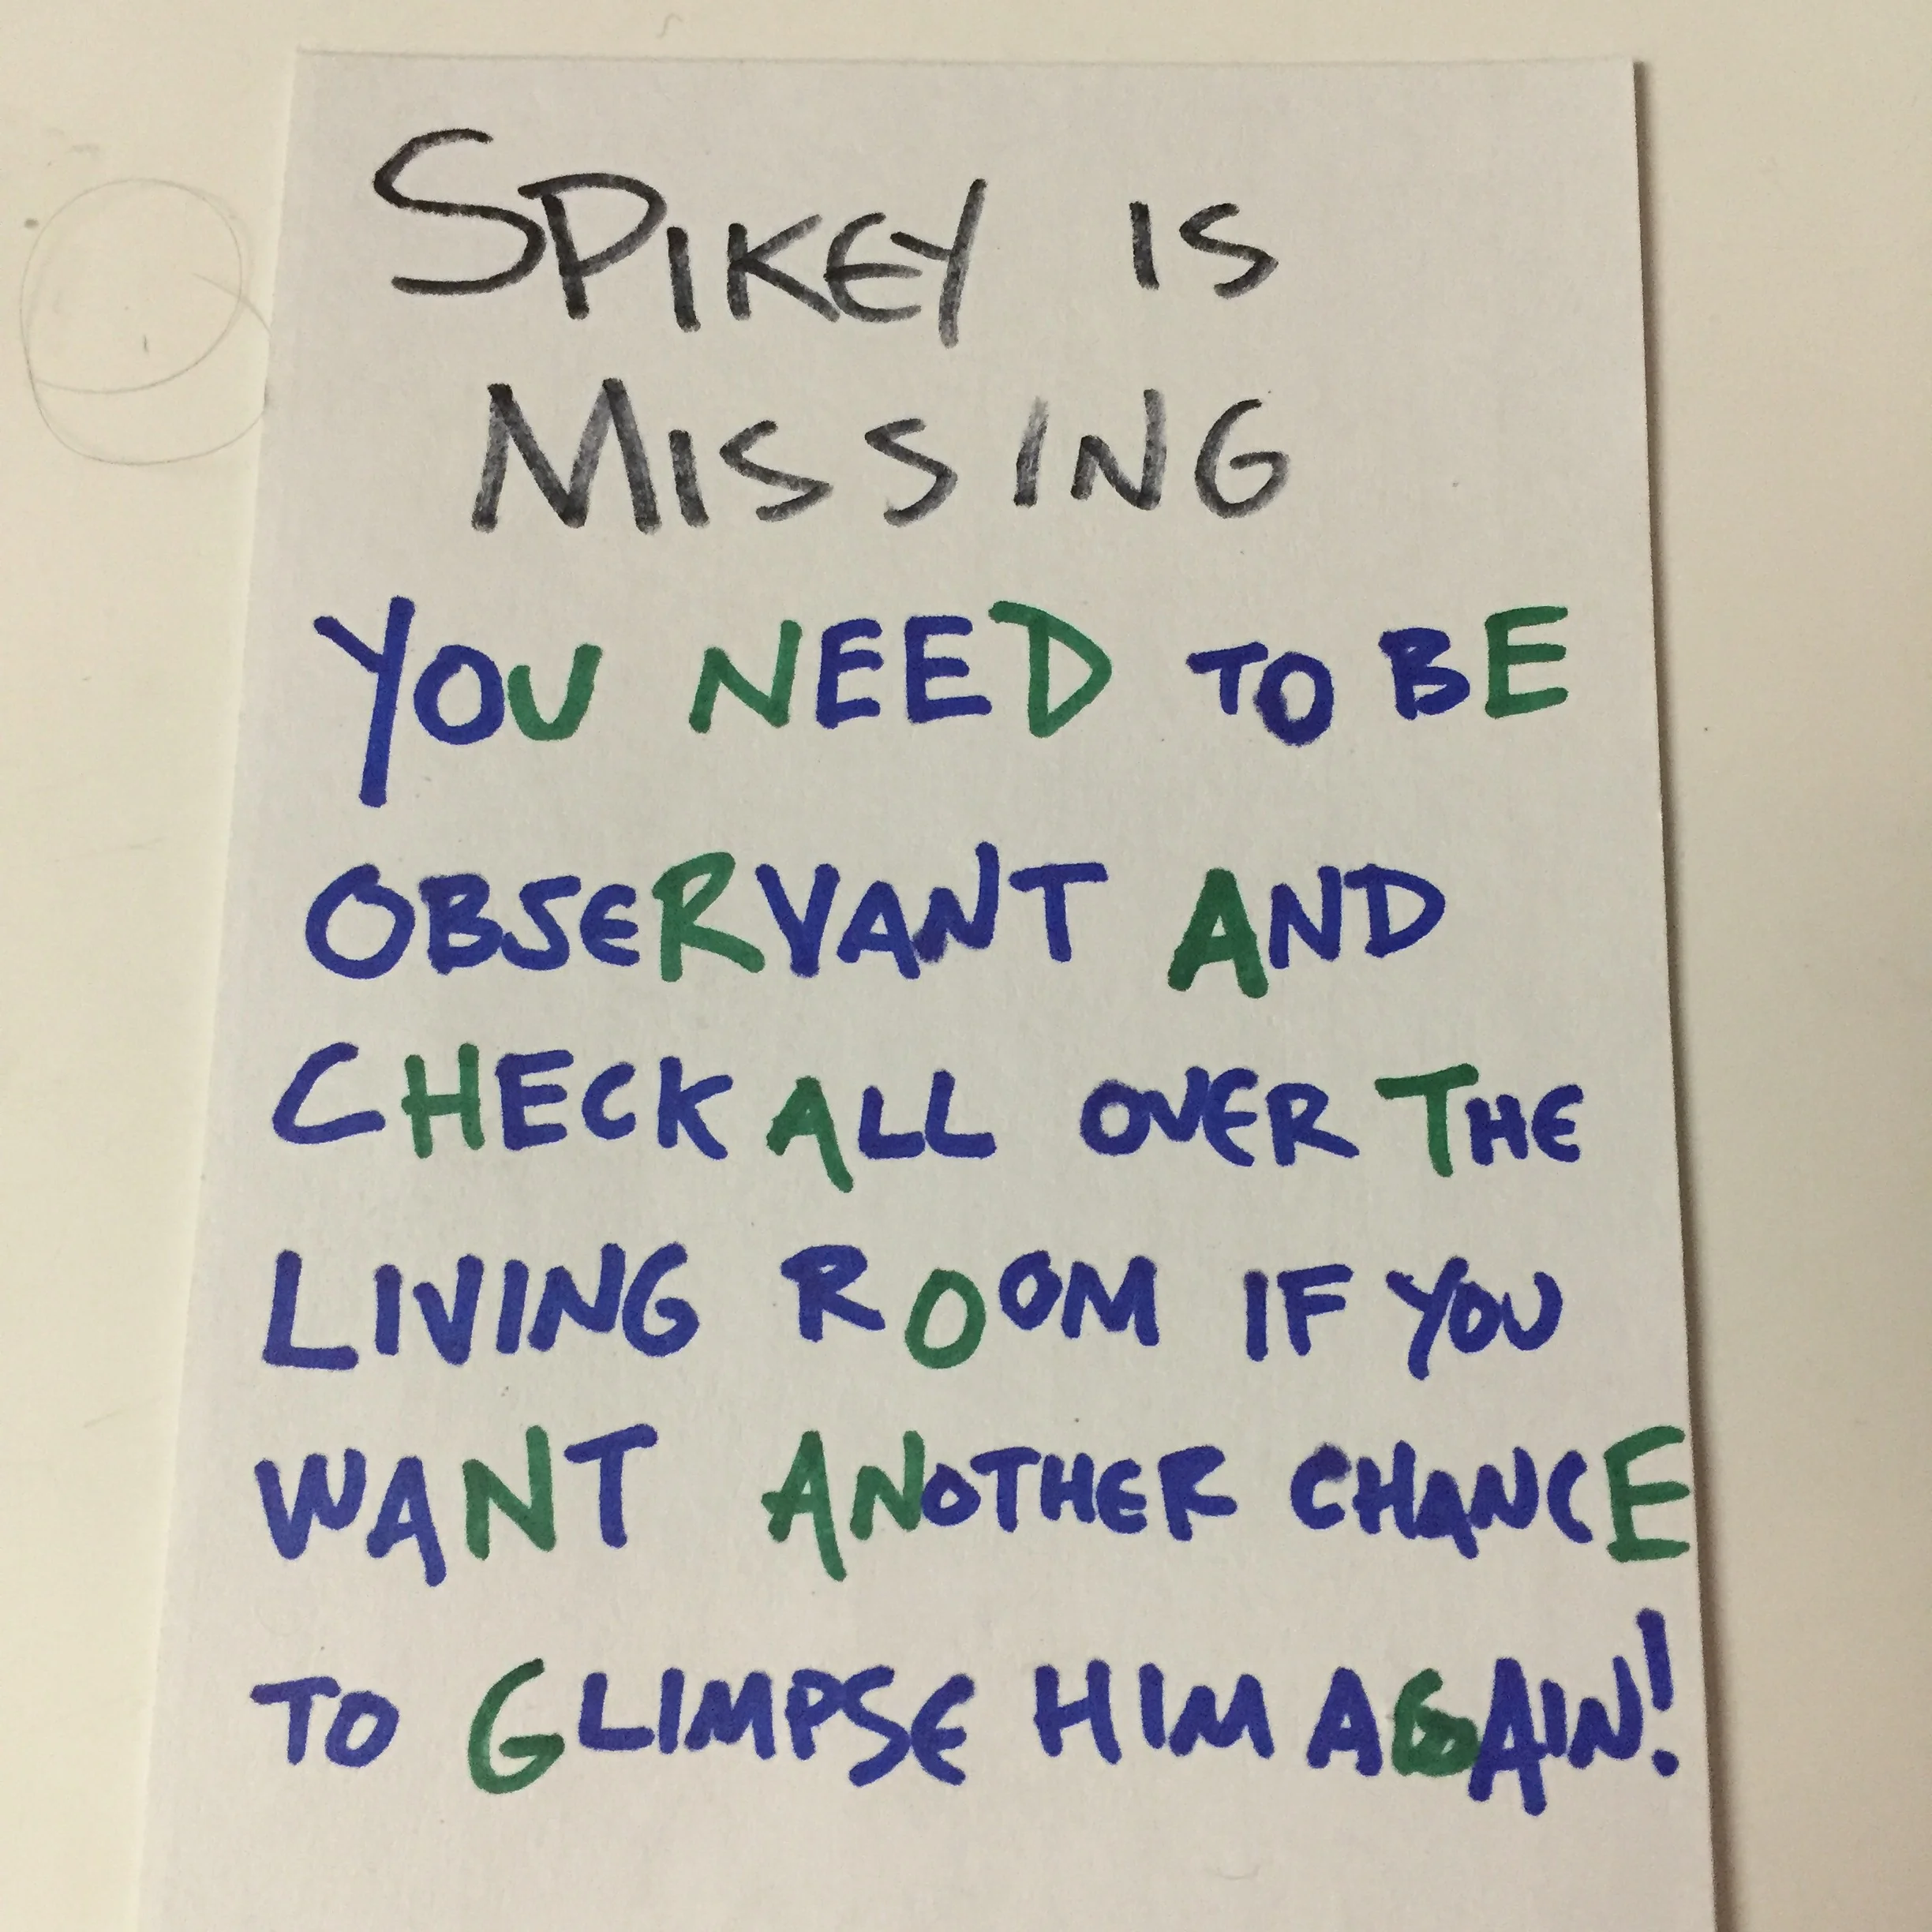 SPIKEY IS
MISSING
YOU NEED TO BE
OBSERVANT AND
CHECK ALL OVER THE
LIVING ROOM IF YOU
WANT ANOTHER CHANCE
TO GLIMPSE HIM AGAIN!